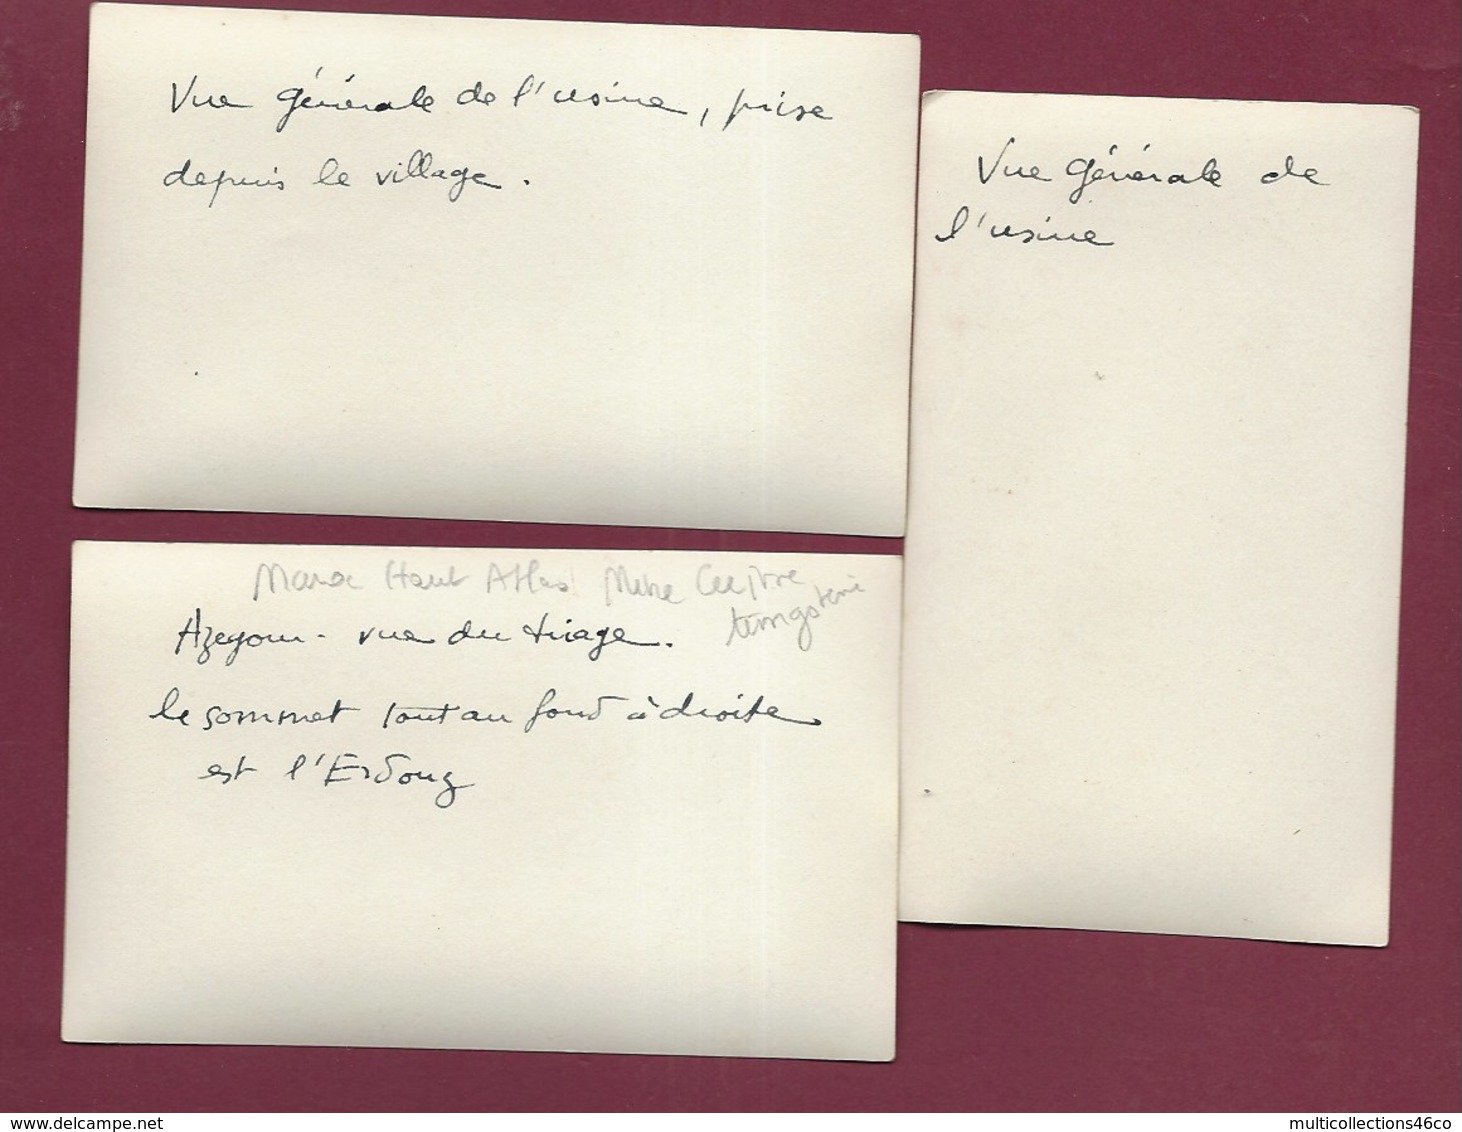 Vue générale de l'usine, prise
depuis le village.
Vue générale de
l'usine
Maroc Haut Atlas Mine Cuivre
tungstène
Azegour - vue du triage.
le sommet tout au fond à droite
est l'Erdouz
delcampe.net
multicollections46co